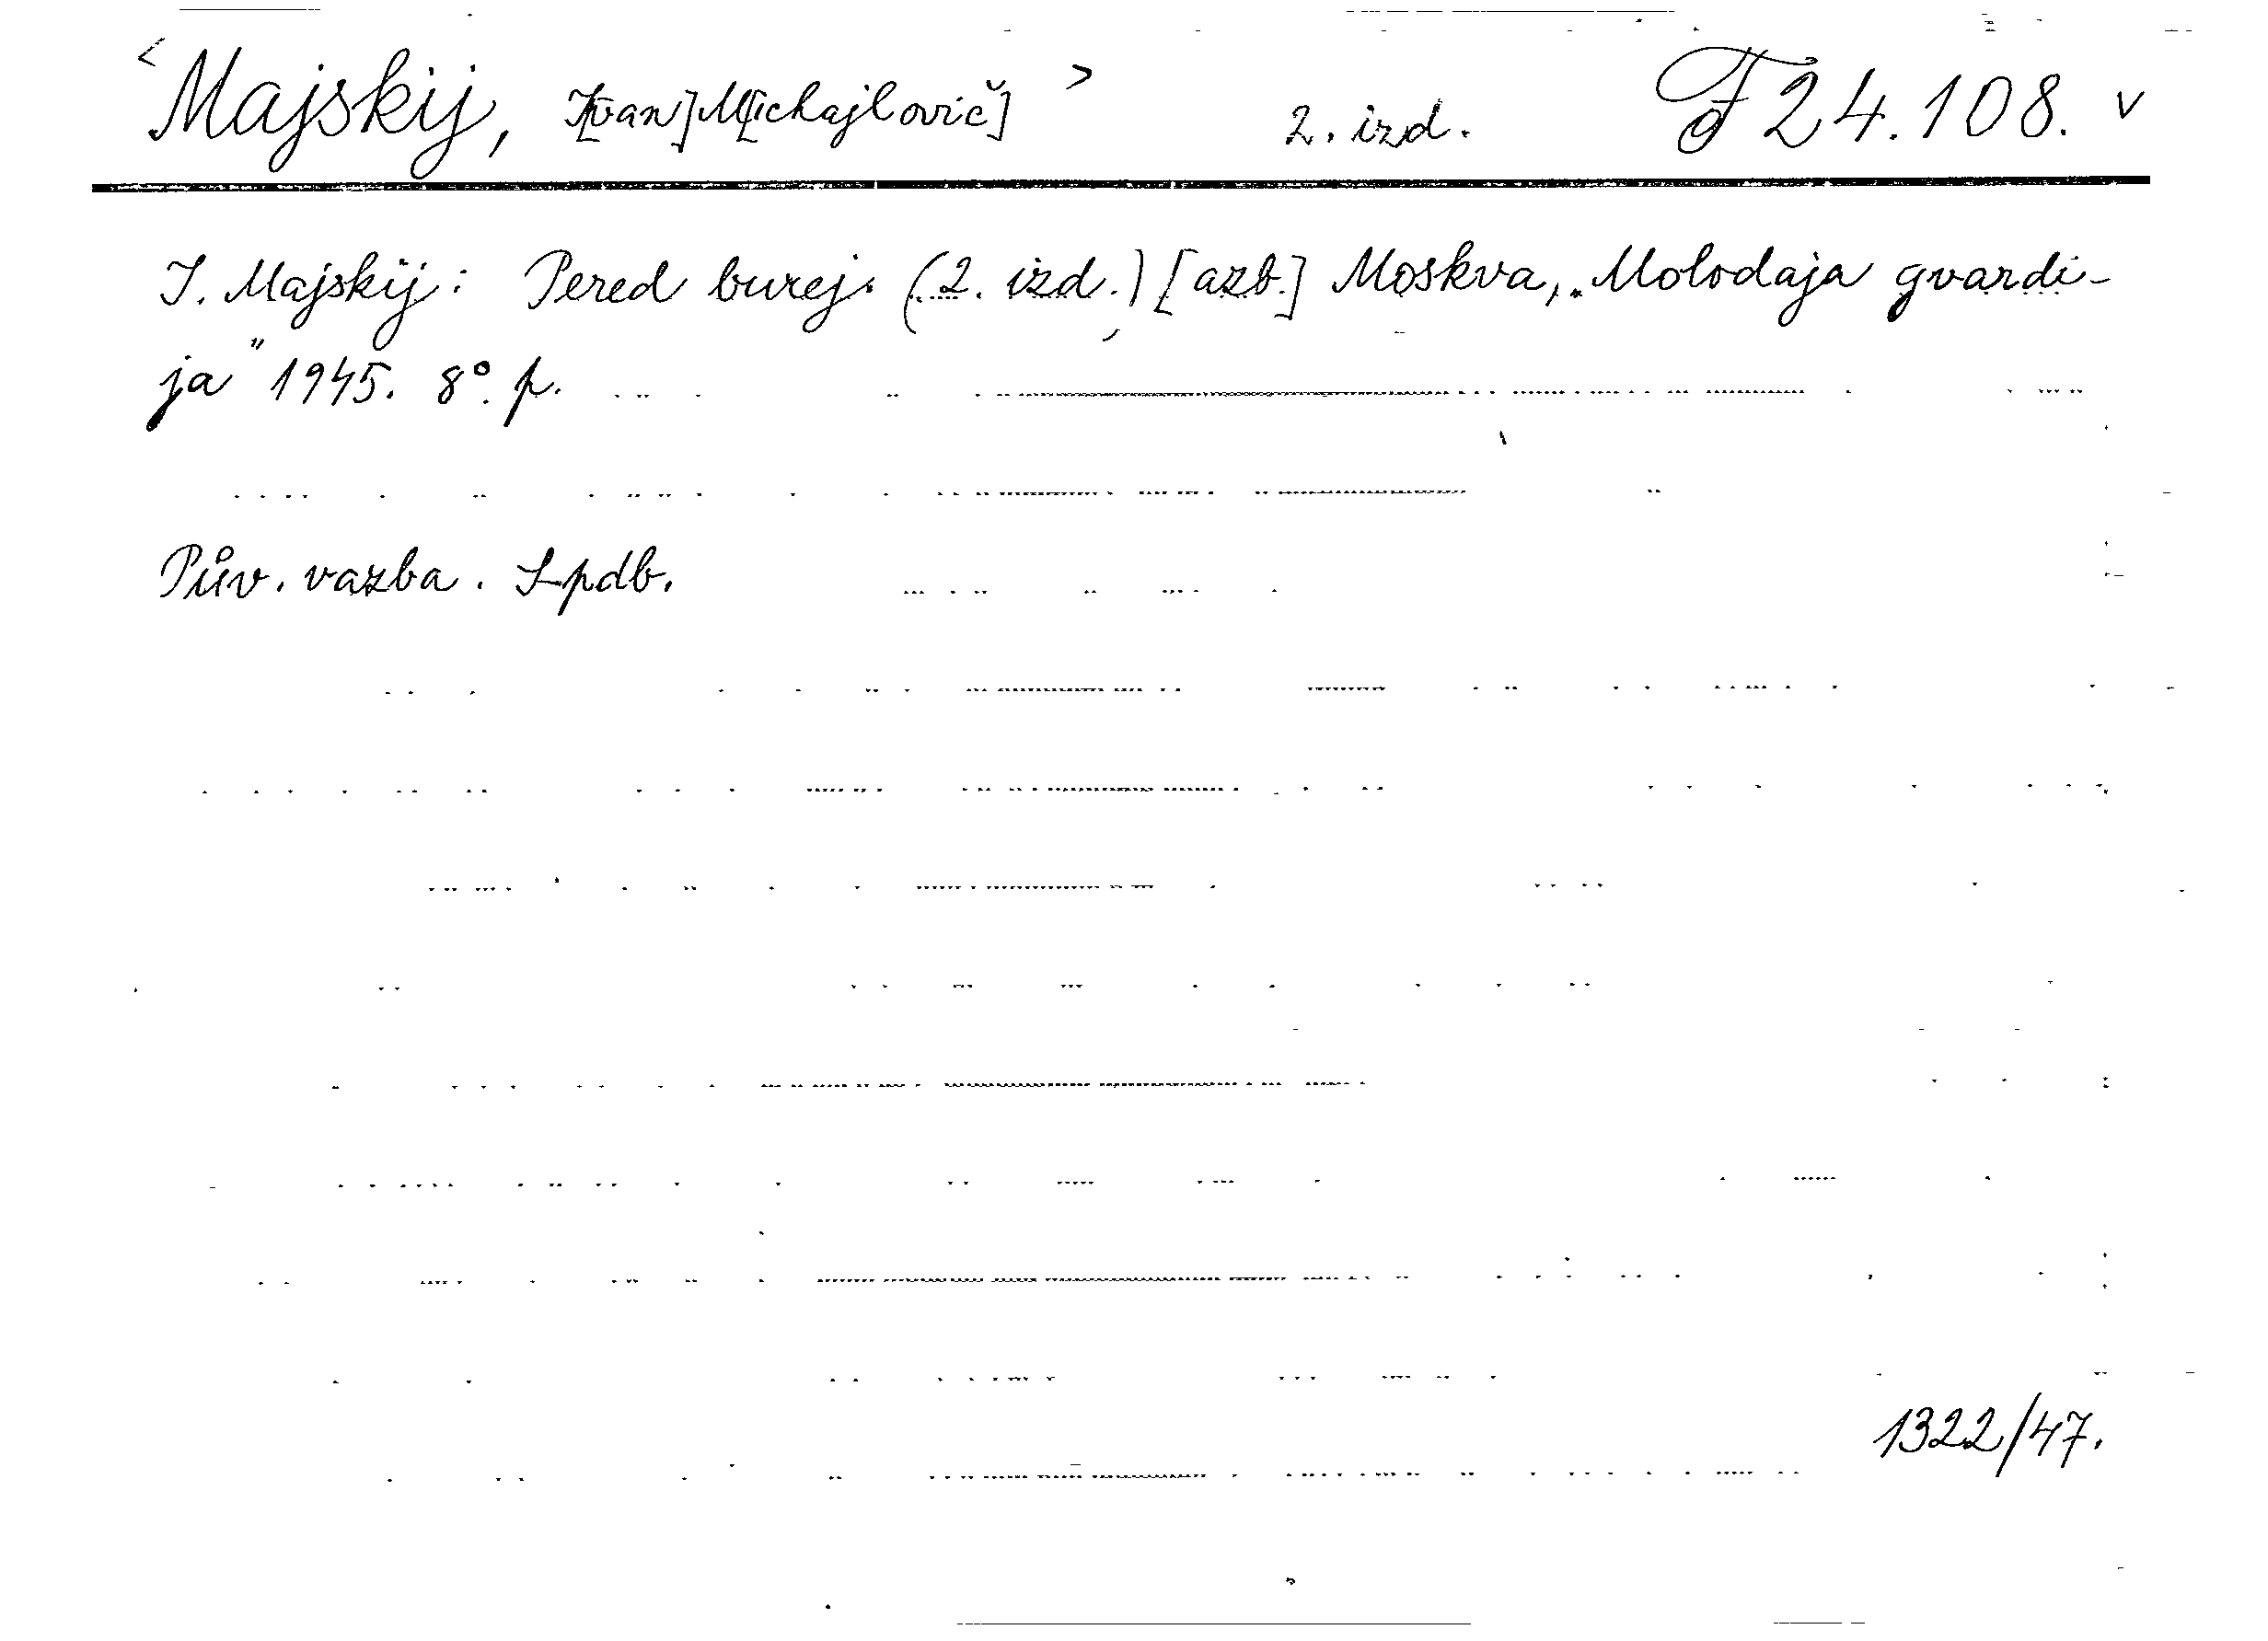 <Majskij, I[van] M[ichajlovič]> 2. izd. F 24.108. v
I. Majskij: Pered burej. (2. izd.) [azb.] Moskva, „Molodaja gvardi-
ja" 1945. 8°. p.
Pův. vazba. Lpdb.
1322/47.